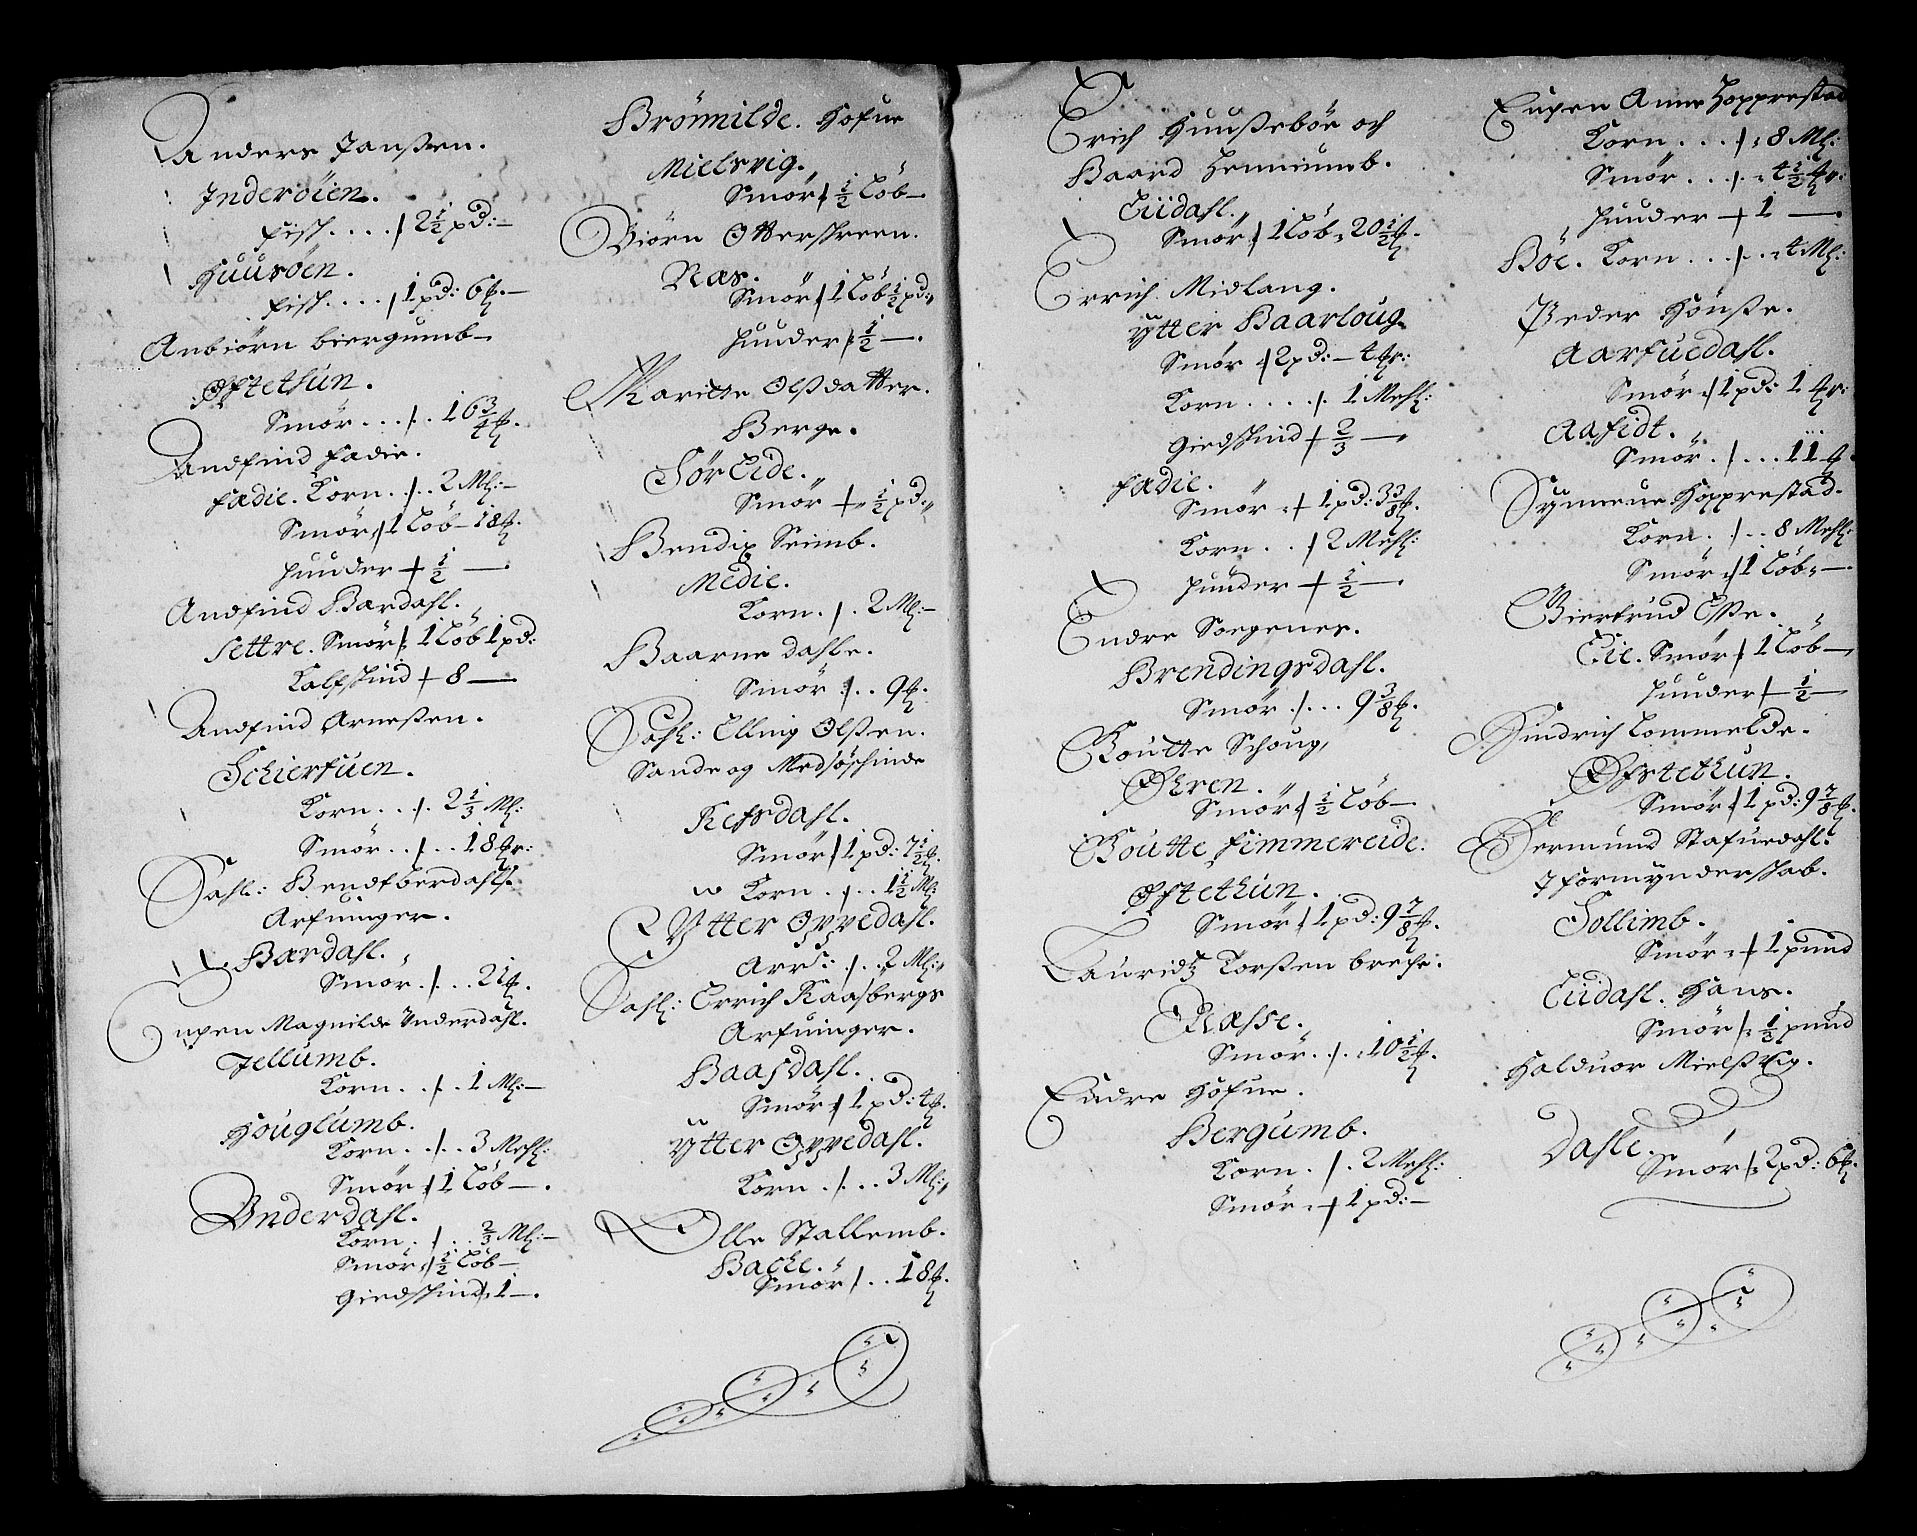 Anders Janßen.
Inderöien.
fisk . . . . / 2½ pd: –
Huusöen.
fisk . . . . / 1 pd: 6 ℔. –
Anbiörn biergumb –
Ofstethun.
Smör . . . / . . 16¾ ℔.
Andfind fædie.
fædie. Korn . . / . . 2 Ml: –
Smör / 1 Löb – 18 ℔.
Huuder + ½ —
Andfind Bærdahl.
Settre. Smör / 1 Löb 1 pd:
Kalfskind + 8 —
Andfind Arneßen.
Schierfuen.
Korn . . / . 2⅓ Ml:
Smör . . / . . 18 ℔r:
Sahl: Bendt berdahls
Arfuinger.
Bærdahl.
Smör . / . . . 21 ℔.
Enken Magnilde Ÿnderdahl.
Jellumb.
Korn . . / . . 1 Ml: –
Houglumb.
Korn . . / . . 3 Mehl:
Smör / 1 Löb – .
Ÿnderdahl.
Korn . / . . ⅔ Ml: –
Smör / ½ Löb –
Giedskind / 1 – .
Brönnilde. Hofue
Mielsvig.
Smör / ½ Löb –
Biörn Otterskreen.
Næs.
Smör / 1 Löb ½ pd:
Huuder / ½ — .
Maritte Olßdatter.
Berge.
Sör Eide.
Smör + ½ pd:
Bendix Seimb.
Medie.
Korn . / . 2 Ml: –
Baarne dahle.
Smör / . . 9 ℔.
Sahl: Elling Olßen.
Sande og Medsöskinde
Refsdahl.
Smör / 1 pd: 7½ ℔.
Korn . . / . . 1½ Ml:
Ytter Oppedahl.
Korn . / . . 2 Ml:
Sahl: Errich Raasbergs
Arfuinger.
Baasdahl.
Smör / 1 pd: 4 ℔.
Ytter Oppedahl.
Korn . / . . . 3 Ml:
Olle Stallemb.
Bache.
Smör / . . 18 ℔.
Erich Huußeböe och
Baard Henniumb.
Eiidahl.
Smör / 1 Löb 20½ ℔.
Errich Midlang.
Ytter Baarloug.
Smör / 2 pd: – 4 ℔r:
Korn . . . . / . 1 Mehl:
Giedskind + ⅔ —
fædie.
Smör + 1 pd: 3⅜ ℔.
Korn . . / 2 Mehl:
Huuder + ½ — .
Endre Sorgenes.
Brendingsdahl.
Smör . / . . . 9⅜ ℔.
Goutte Schoug,
Öhren.
Smör / ½ Löb –
Goutte fimmereide.
Ofstethun.
Smör / 1 pd: 9⅞ ℔.
Lauridtz Torßen breche.
Rasse.
Smör . / . . 10½ ℔.
Endre Hofue.
Bergumb.
Korn . / . 2 Mehl:
Smör + 1 pd: –
Enken Anne Hopprestad
Korn . . . / 8 Ml:
Smör . . . / . . 4½ ℔r:
Huuder + 1 — .
Böe. Korn . . . / . . 4 Ml:
Peder Hönße.
Aarfuedahl.
Smör / 1 pd: 1 ℔r:
Aafidt.
Smör . / . . . 11 ℔.
Synneue Hopprestad.
Korn . / . . 8 Mehl:
Smör / 1 Löb – .
Giertrud Öße.
Eie. Smör / 1 Löb –
Huuder + ½ —
Hindrich Lommelde.
Ofstethun.
Smör / 1 pd: 9⅞ ℔.
Germund Stafuedahl.
J formynderskab.
Sollimb.
Smör + 1 pund
Eiidahl. Hans.
Smör / ½ pund
Halduor Mielßvig.
Dahle.
Smör / 2 pd: 6 ℔.